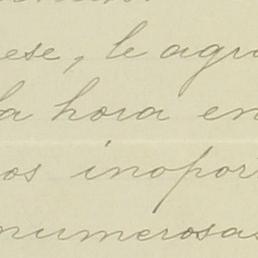 ese, le agra
la hora en
os inopor
numerosas